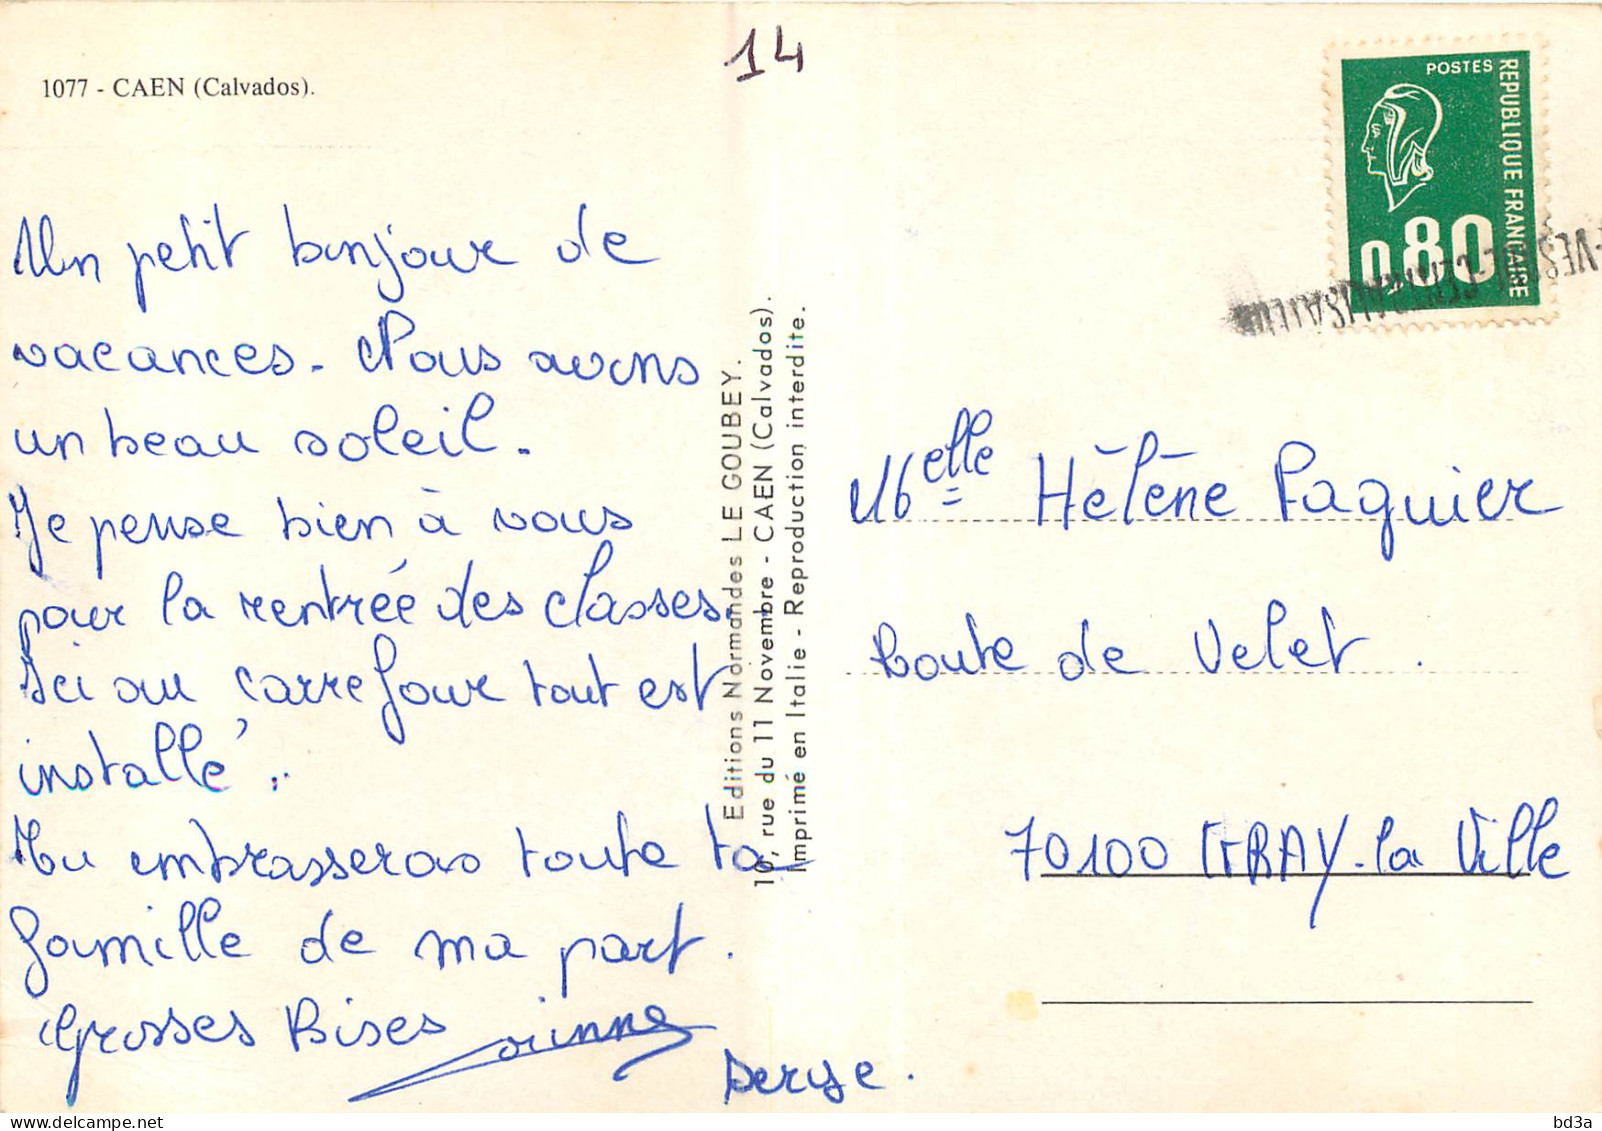 14
1077 - CAEN (Calvados).
Un petit bonjour de
vacances. Nous avons
un beau soleil.
Je pense bien à vous
pour la rentrée des classes.
Ici au carrefour tout est
installé.
Tu embrasseras toute ta
famille de ma part.
Grosses Bises Corinne
Serge.
Editions Normandes LE GOUBEY.
10, rue du 11 Novembre - CAEN (Calvados).
Imprimé en Italie - Reproduction interdite.
POSTES
REPUBLIQUE FRANCAISE
0,80
Melle Hélène Paquier
Route de Velet.
70100 GRAY-la Ville
bd3a